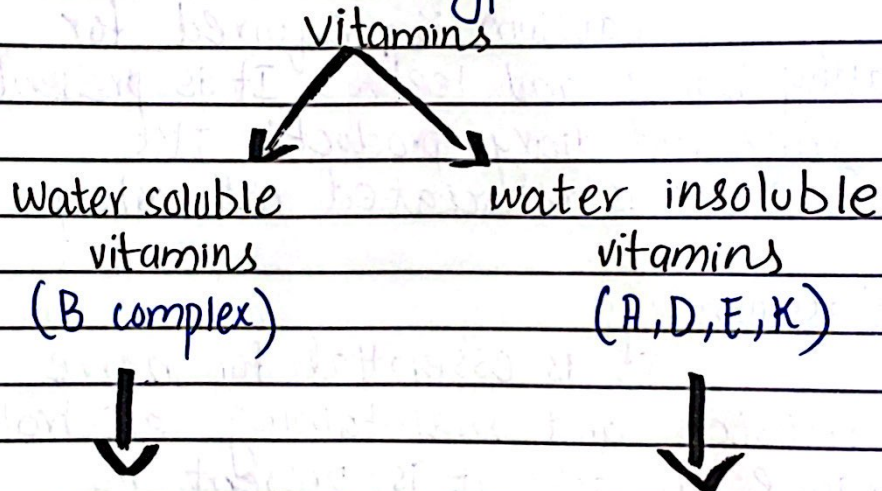 vitamins
water soluble
vitamins
(B complex)
water insoluble
vitamins
(A,D,E,K)